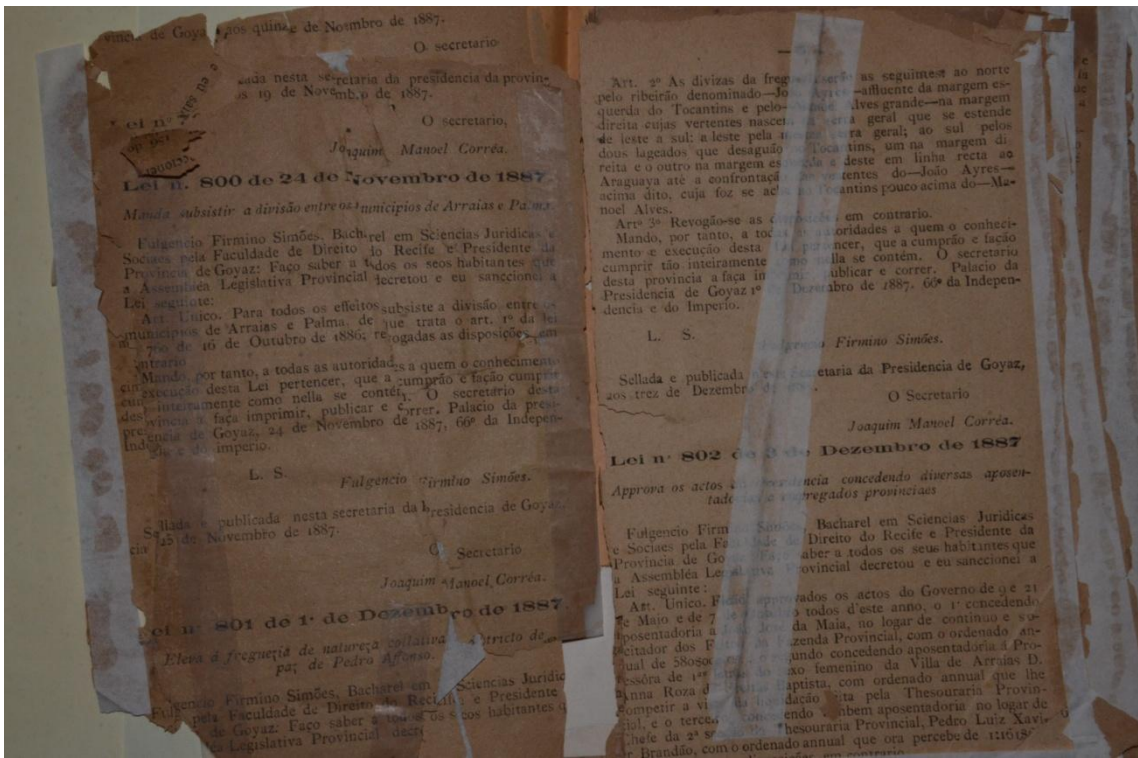 vincia de Goyaz aos quinze de Nosmbro de 1887.
O secretario
ada nesta secretaria da presidencia da provin-
os 19 de Novembro de 1887.
O secretario,
Joaquim Manoel Corrêa.
Lei n. 800 de 24 de Novembro de 1887.
Manda subsistir a divisão entre os municipios de Arraias e Palma.
Fulgencio Firmino Simões, Bacharel em Sciencias Juridicas e
Sociaes pela Faculdade de Direito do Recife e Presidente da
Provincia de Goyaz: Faço saber a todos os seos habitantes que
a Assembléa Legislativa Provincial decretou e eu sanccionei a
Lei seguinte:
Art. Unico. Para todos os effeitos subsiste a divisão entre os
municipios de Arraias e Palma, de que trata o art. 1º da lei
n. 760 de 16 de Outubro de 1886; revogadas as disposições em
contrario
Mando, por tanto, a todas as autoridades a quem o conhecimento
execução desta Lei pertencer, que a cumprão e fação cumprir
inteiramente como nella se contém. O secretario desta
provincia a faça imprimir, publicar e correr. Palacio da presi-
encia de Goyaz, 24 de Novembro de 1887, 66º da Indepen-
e do imperio.
L. S.
Fulgencio Firmino Simões.
Sellada e publicada nesta secretaria da presidencia de Goyaz,
25 de Novembro de 1887.
O Secretario
Joaquim Manoel Corrêa.
ei n. 801 de 1º de Dezembro de 1887.
Eleva á freguezia de natureza collativa districto de
paz de Pedro Affonso.
Fulgencio Firmino Simões, Bacharel em Sciencias Juridic
pela Faculdade de Direito Recife e Presidente
de Goyaz: Faço saber a todos os seos habitantes q
Legislativa Provincial decre
Art. 2º As divizas da freguezia serão as seguintes: ao norte
pelo ribeirão denominado—João Ayres—affluente da margem es-
querda do Tocantins e pelo Alves grande—na margem
direita cujas vertentes nascem serra geral que se estende
de leste a sul; a leste pela serra geral; ao sul pelos
dous lageados que desaguão Tocantins, um na margem di
reita e o outro na margem esquerda e deste em linha recta ao
Araguaya até a confrontação vertentes do—João Ayres—
acima dito, cuja foz se acha Tocantins pouco acima do—Ma-
noel Alves.
Artº 3º Revogão-se as disposições em contrario.
Mando, por tanto, a todas autoridades a quem o conheci-
mento e execução desta Lei pertencer, que a cumprão e fação
cumprir tão inteiramente como nella se contém. O secretario
desta provincia a faça publicar e correr. Palacio da
Presidencia de Goyaz 1º de Dezembro de 1887, 66º da Indepen-
dencia e do Imperio.
L. S.
Fulgencio Firmino Simões.
Sellada e publicada secretaria da Presidencia de Goyaz,
aos trez de Dezembro
O Secretario
Joaquim Manoel Corrêa.
Lei nº 802 de 3 de Dezembro de 1887
Approva os actos presidencia concedendo diversas aposen-
tadorias empregados provinciaes
Fulgencio Firmino Simões, Bacharel em Sciencias Juridicas
e Sociaes pela Faculdade de Direito do Recife e Presidente da
Provincia de Goyaz: Faço saber a todos os seus habitantes que
a Assembléa Legislativa Provincial decretou e eu sanccionei a
Lei seguinte:
Art. Unico. Ficão approvados os actos do Governo de 9 e 21
de Maio e de 7 todos d'este anno, o 1º concedendo
aposentadoria a da Maia, no logar de continuo e so-
licitador dos Feitos Fazenda Provincial, com o ordenado an-
ual de segundo concedendo aposentadoria á Pro-
essóra de sexo femenino da Villa de Arraias D.
Anna Roza Baptista, com ordenado annual que lhe
competir a liquidação feita pela Thesouraria Provin-
cial, e o terceiro concedendo tambem aposentadoria no logar de
chefe da 2ª Thesouraria Provincial, Pedro Luiz Xavi-
r Brandão, com o ordenado annual que ora percebe de
em contrario